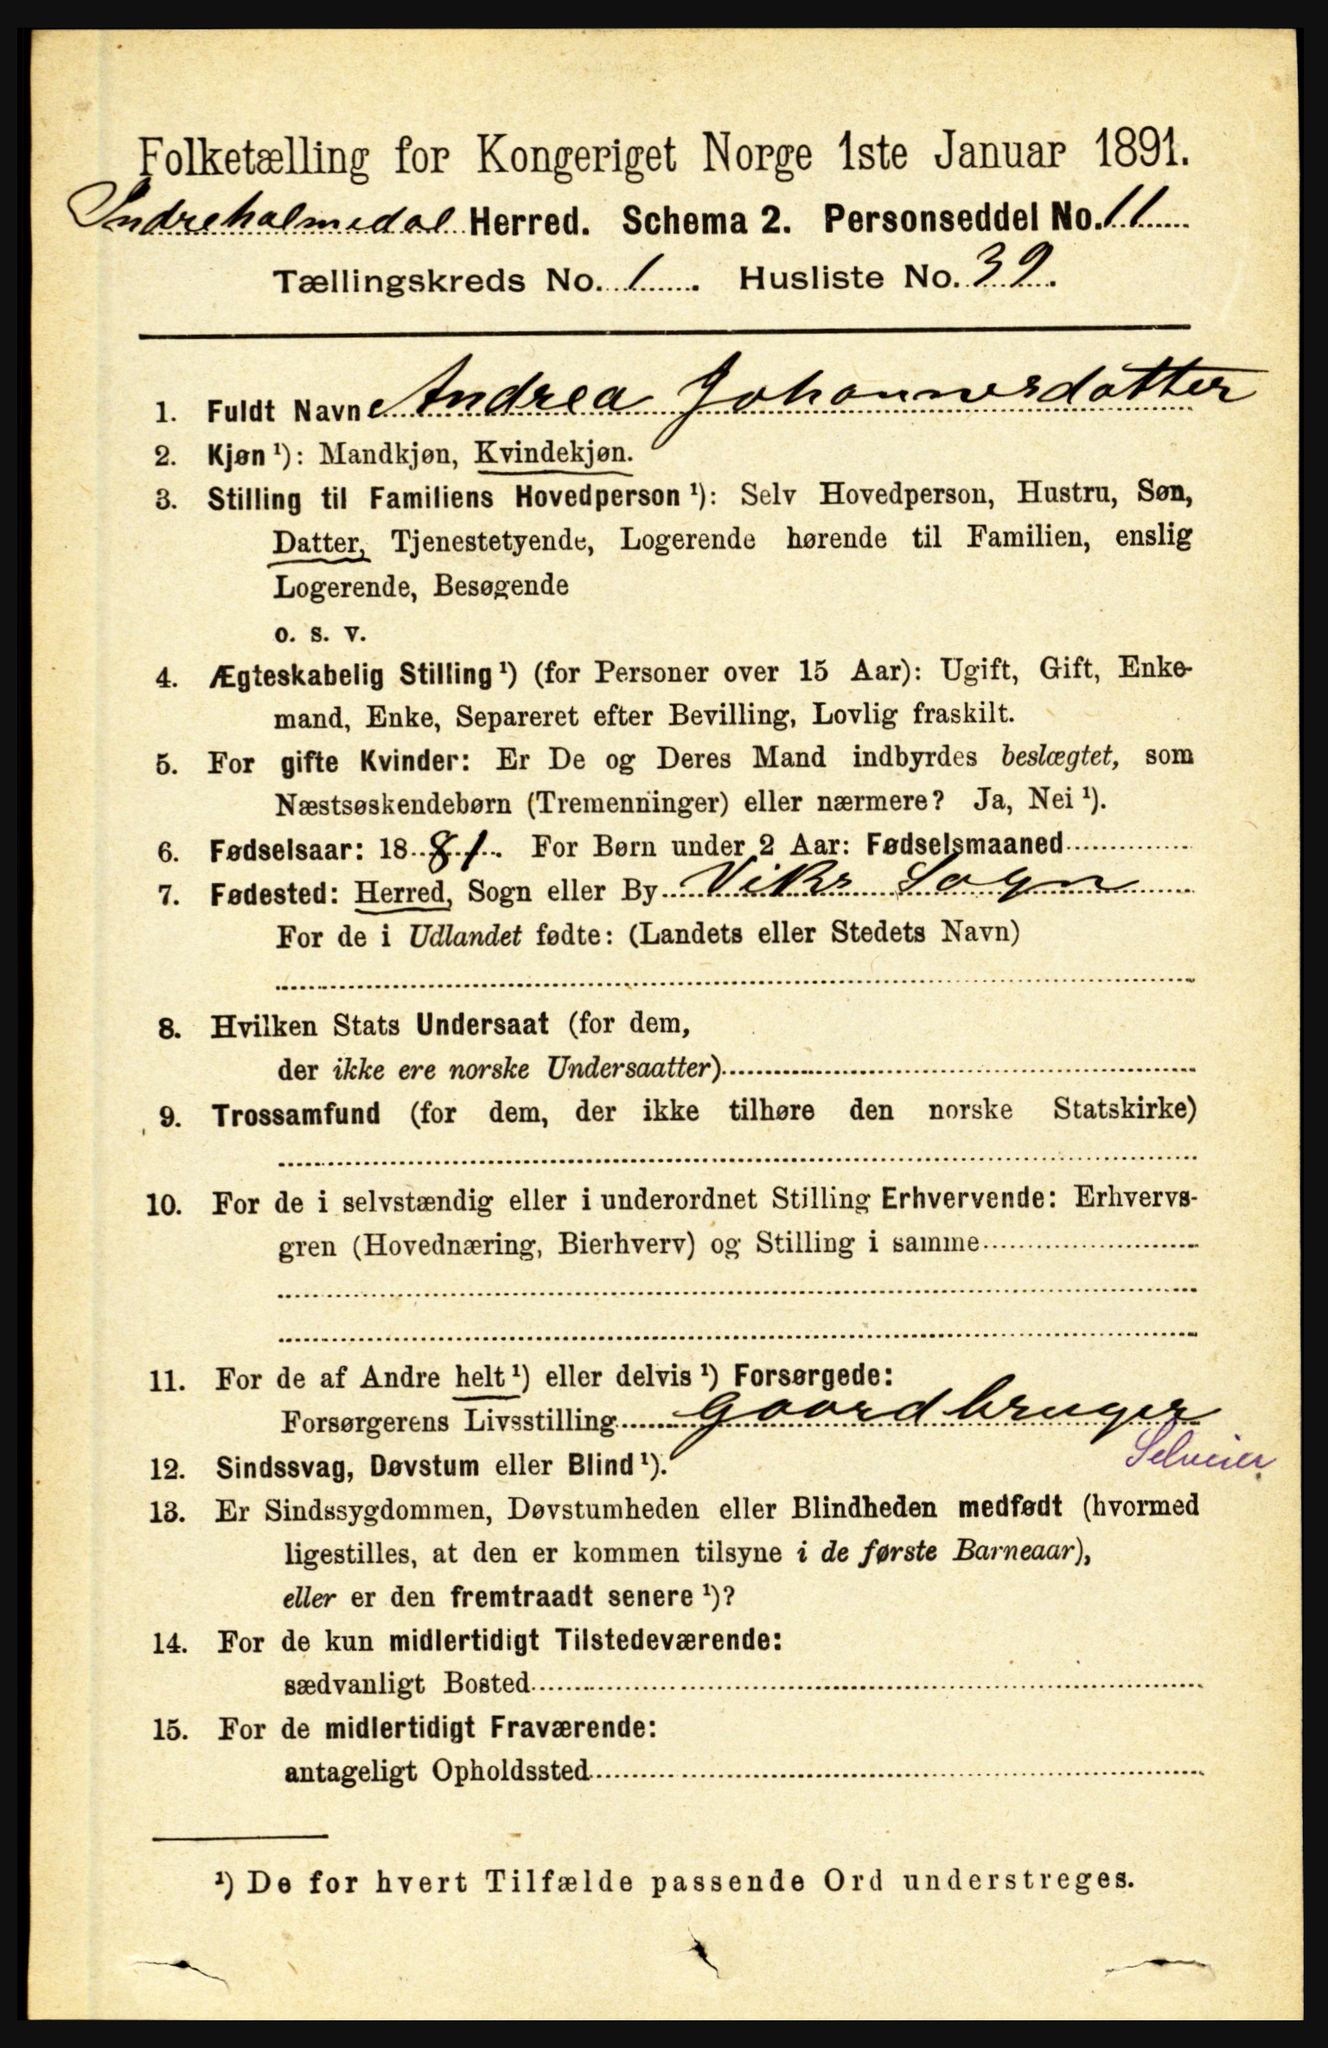 Folketælling for Kongeriget Norge 1ste Januar 1891.
Indreholmedal Herred. Schema 2. Personseddel No. 11
Tællingskreds No. 1. Husliste No. 39.
1. Fuldt Navn Andrea Johannesdatter
2. Kjøn ¹): Mandkjøn, Kvindekjøn.
3. Stilling til Familiens Hovedperson ¹): Selv Hovedperson, Hustru, Søn,
Datter, Tjenestetyende, Logerende hørende til Familien, enslig
Logerende, Besøgende
o. s. v.
4. Ægteskabelig Stilling ¹) (for Personer over 15 Aar): Ugift, Gift, Enke-
mand, Enke, Separeret efter Bevilling, Lovlig fraskilt.
5. For gifte Kvinder: Er De og Deres Mand indbyrdes beslægtet, som
Næstsøskendebørn (Tremenninger) eller nærmere? Ja, Nei ¹).
6. Fødselsaar: 1881. For Børn under 2 Aar: Fødselsmaaned
7. Fødested: Herred, Sogn eller By Viks Sogn
For de i Udlandet fødte: (Landets eller Stedets Navn)
8. Hvilken Stats Undersaat (for dem,
der ikke ere norske Undersaatter)
9. Trossamfund (for dem, der ikke tilhøre den norske Statskirke)
10. For de i selvstændig eller i underordnet Stilling Erhvervende: Erhvervs-
gren (Hovednæring, Bierhverv) og Stilling i samme
11. For de af Andre helt ¹) eller delvis ¹) Forsørgede:
Forsørgerens Livsstilling Gaardbruger
Selveier
12. Sindssvag, Døvstum eller Blind ¹).
13. Er Sindssygdommen, Døvstumheden eller Blindheden medfødt (hvormed
ligestilles, at den er kommen tilsyne i de første Barneaar),
eller er den fremtraadt senere ¹)?
14. For de kun midlertidigt Tilstedeværende:
sædvanligt Bosted
15. For de midlertidigt Fraværende:
antageligt Opholdssted
¹) De for hvert Tilfælde passende Ord understreges.